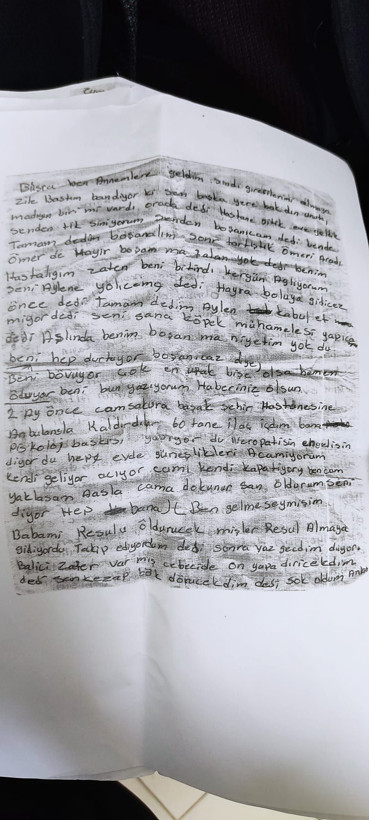 Büşra ben Annemlere geldim şimdi
zile Bastım
madıya bin mi vardı, orada dedi Hastane gittik eve geldik
senden tik siniyorum senden boşanıcam dedi bende
Tamam dedim boşanalım sonra tartıştık Ömeri Aradı
Ömer de Hayır boşanma falan yok dedi benim
Hastalığım zaten beni bitirdi hergün Ağlıyorum
seni Aylene yolicemş dedi Hayra boluya gidicez
önce dedi Tamam dedim Aylen kabul et
miyor dedi seni sana köpek mühamelesi yapıca
dedi Aslında benim boşan ma niyetim yok du
beni hep durtuyor boşanıcaz diye)
Beni dövüyor Çok en ufak bişe olsa hemen
dövüyor beni bun yazıyorum Haberiniz olsun
2 Ay önce camsakura başak şehir Hastanesine
Anbulansla Kaldırdılar 60 tane ilaç içdim bana
Psikoloj baskısı yapıyor du
diyor du hepz evde güneşlikleri Acamıyorum
kendi geliyor açıyor camı kendi kapatıyor
yaklaşam Aasla cama dokunur san öldürüm seni
diyor Hep bana)( Ben gelmeseymişim
Babamı Resulu öldürücek mişler Resul Almaya
gidiyordu Takip ediyordum dedi sonra vaz geçdim diyor.
Balici Zafer var mış cebecide On yapa diricekdim
dedi sen kezap dökücekdim dedi şok oldum